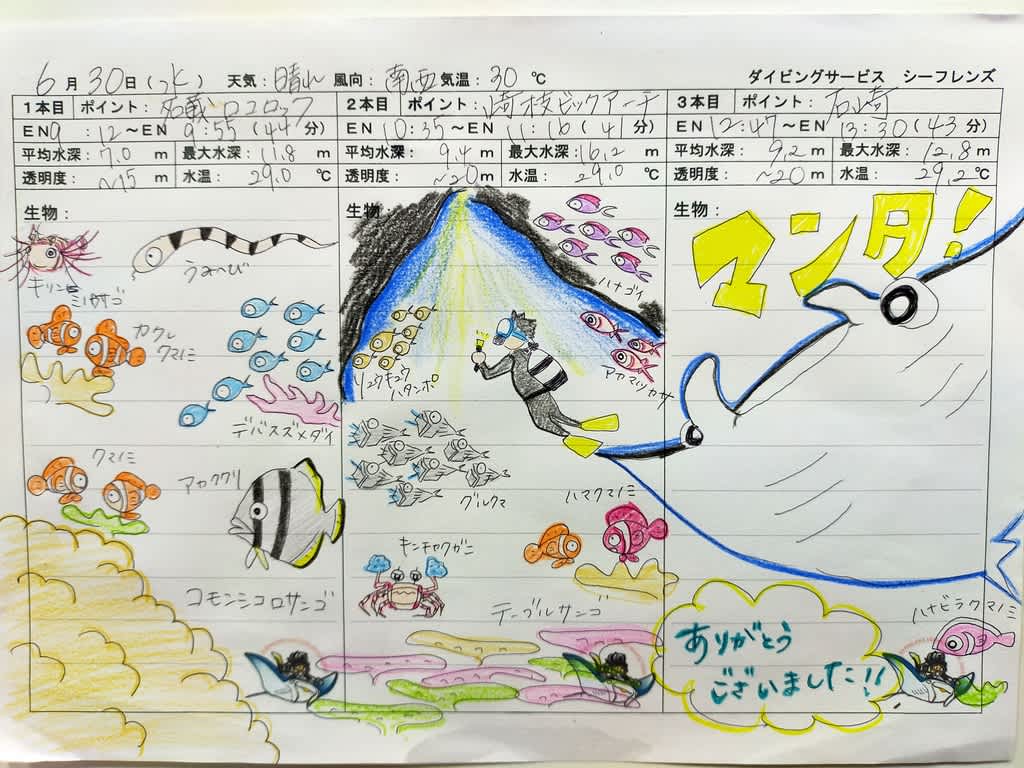 6月30日(水) 天気:晴れ 風向:南西 気温:30℃ ダイビングサービス シーフレンズ
1本目 ポイント:名蔵 ロコロック
EN 9:12～EN 9:55(44分)
平均水深:7.0m 最大水深:11.8m
透明度:~15m 水温:29.0℃
生物:
キリンミノカサゴ
うみへび
カクレクマノミ
デバスズメダイ
クマノミ
アカククリ
コモンシコロサンゴ
2本目 ポイント:崎枝ビッグアーチ
EN 10:35～EN 11:16(41分)
平均水深:9.4m 最大水深:16.2m
透明度:~20m 水温:29.0℃
生物:
ハナゴイ
リュウキュウハタンポ
アカマツカサ
グルクマ
ハマクマノミ
キンチャクガニ
テーブルサンゴ
3本目 ポイント:石崎
EN 12:47～EN 13:30(43分)
平均水深:9.2m 最大水深:12.8m
透明度:~20m 水温:29.2℃
生物:
マンタ!
ハナビラクマノミ
ありがとう
ございました!!